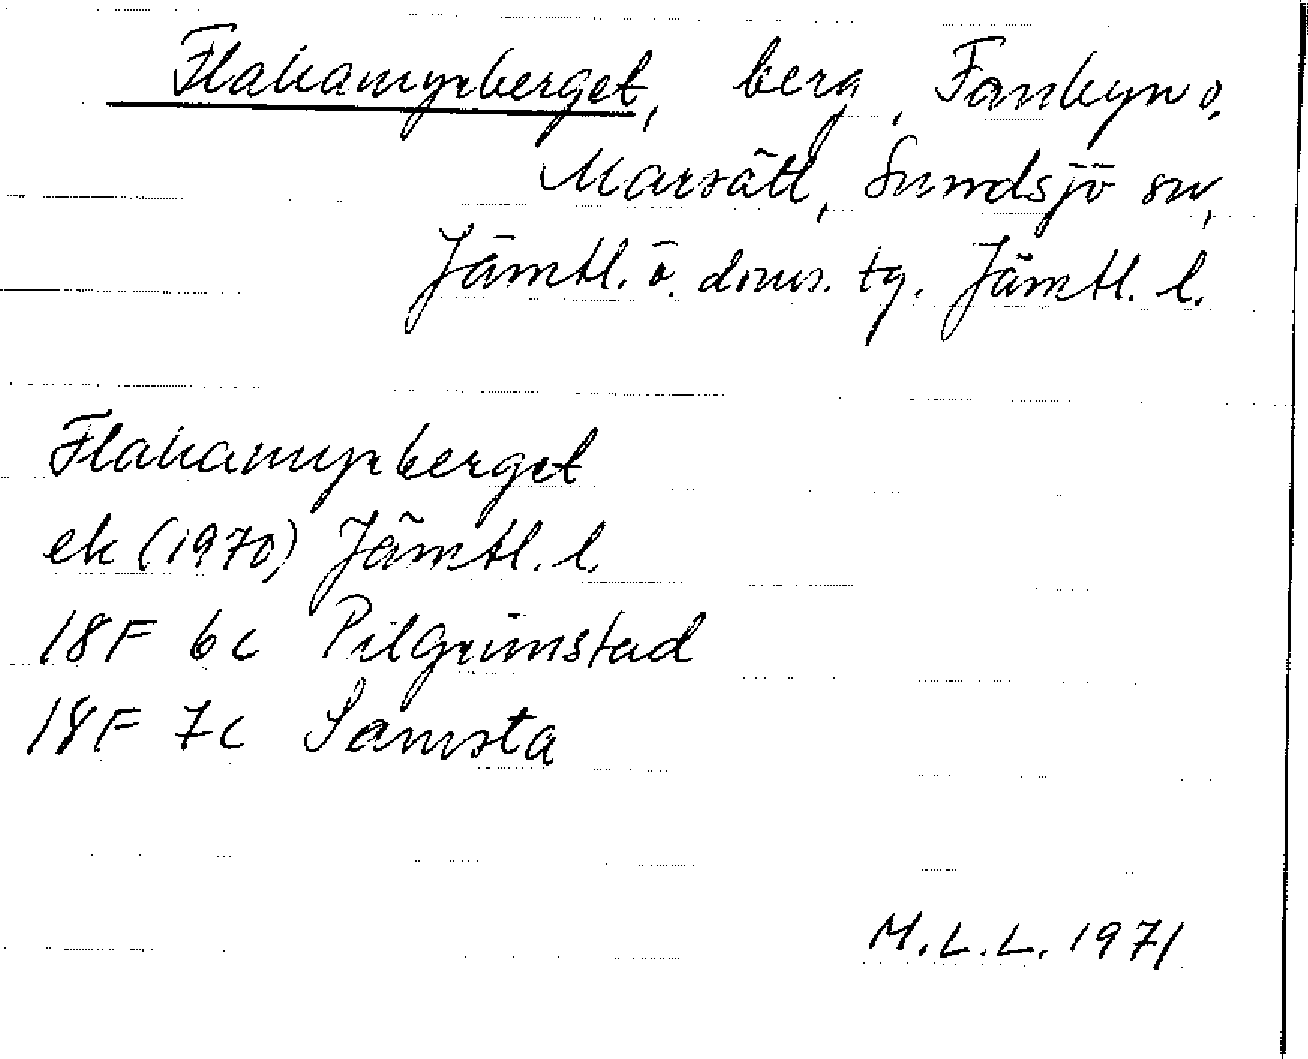 Flakamyrberget, berg, Fanbyn o.
Marsätt, Sundsjö sn,
Jämtl. ö. doms. tg. Jämtl. l.
Flakamyrberget
ek (1970) Jämtl. l.
18F 6c Pilgrimstad
18F 7c Samsta
M.L.L. 1971